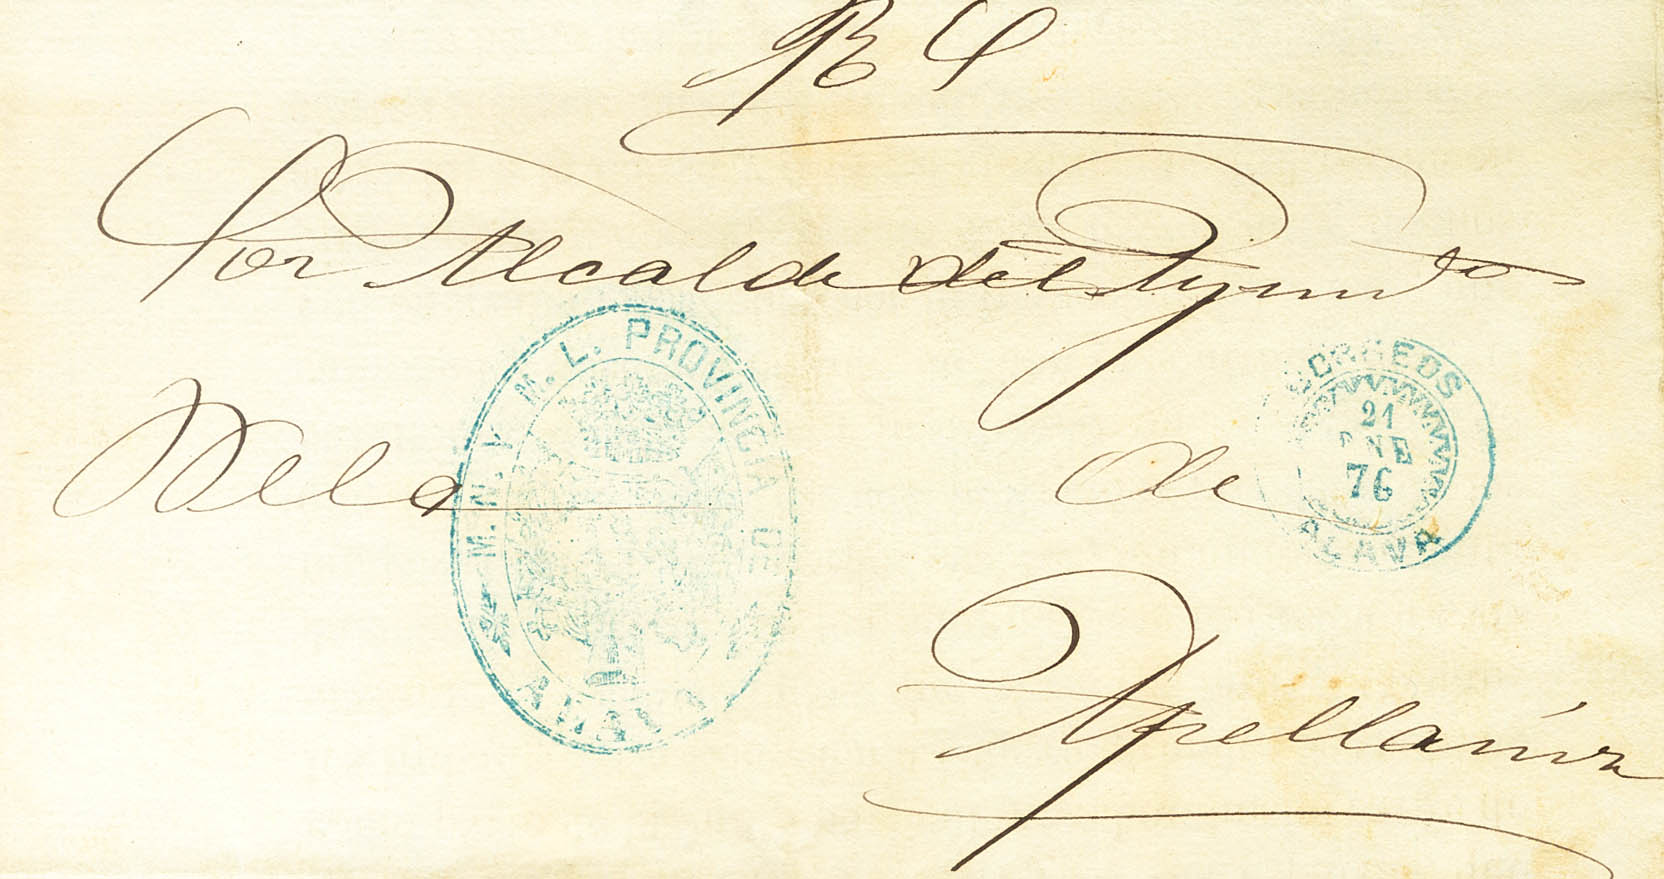 Sor Alcalde del Ayunto
M. N. Y M. L. PROVINCIA DE
ALAVA
CORREOS
21
ENE
76
ALAVA
de
Apellániz